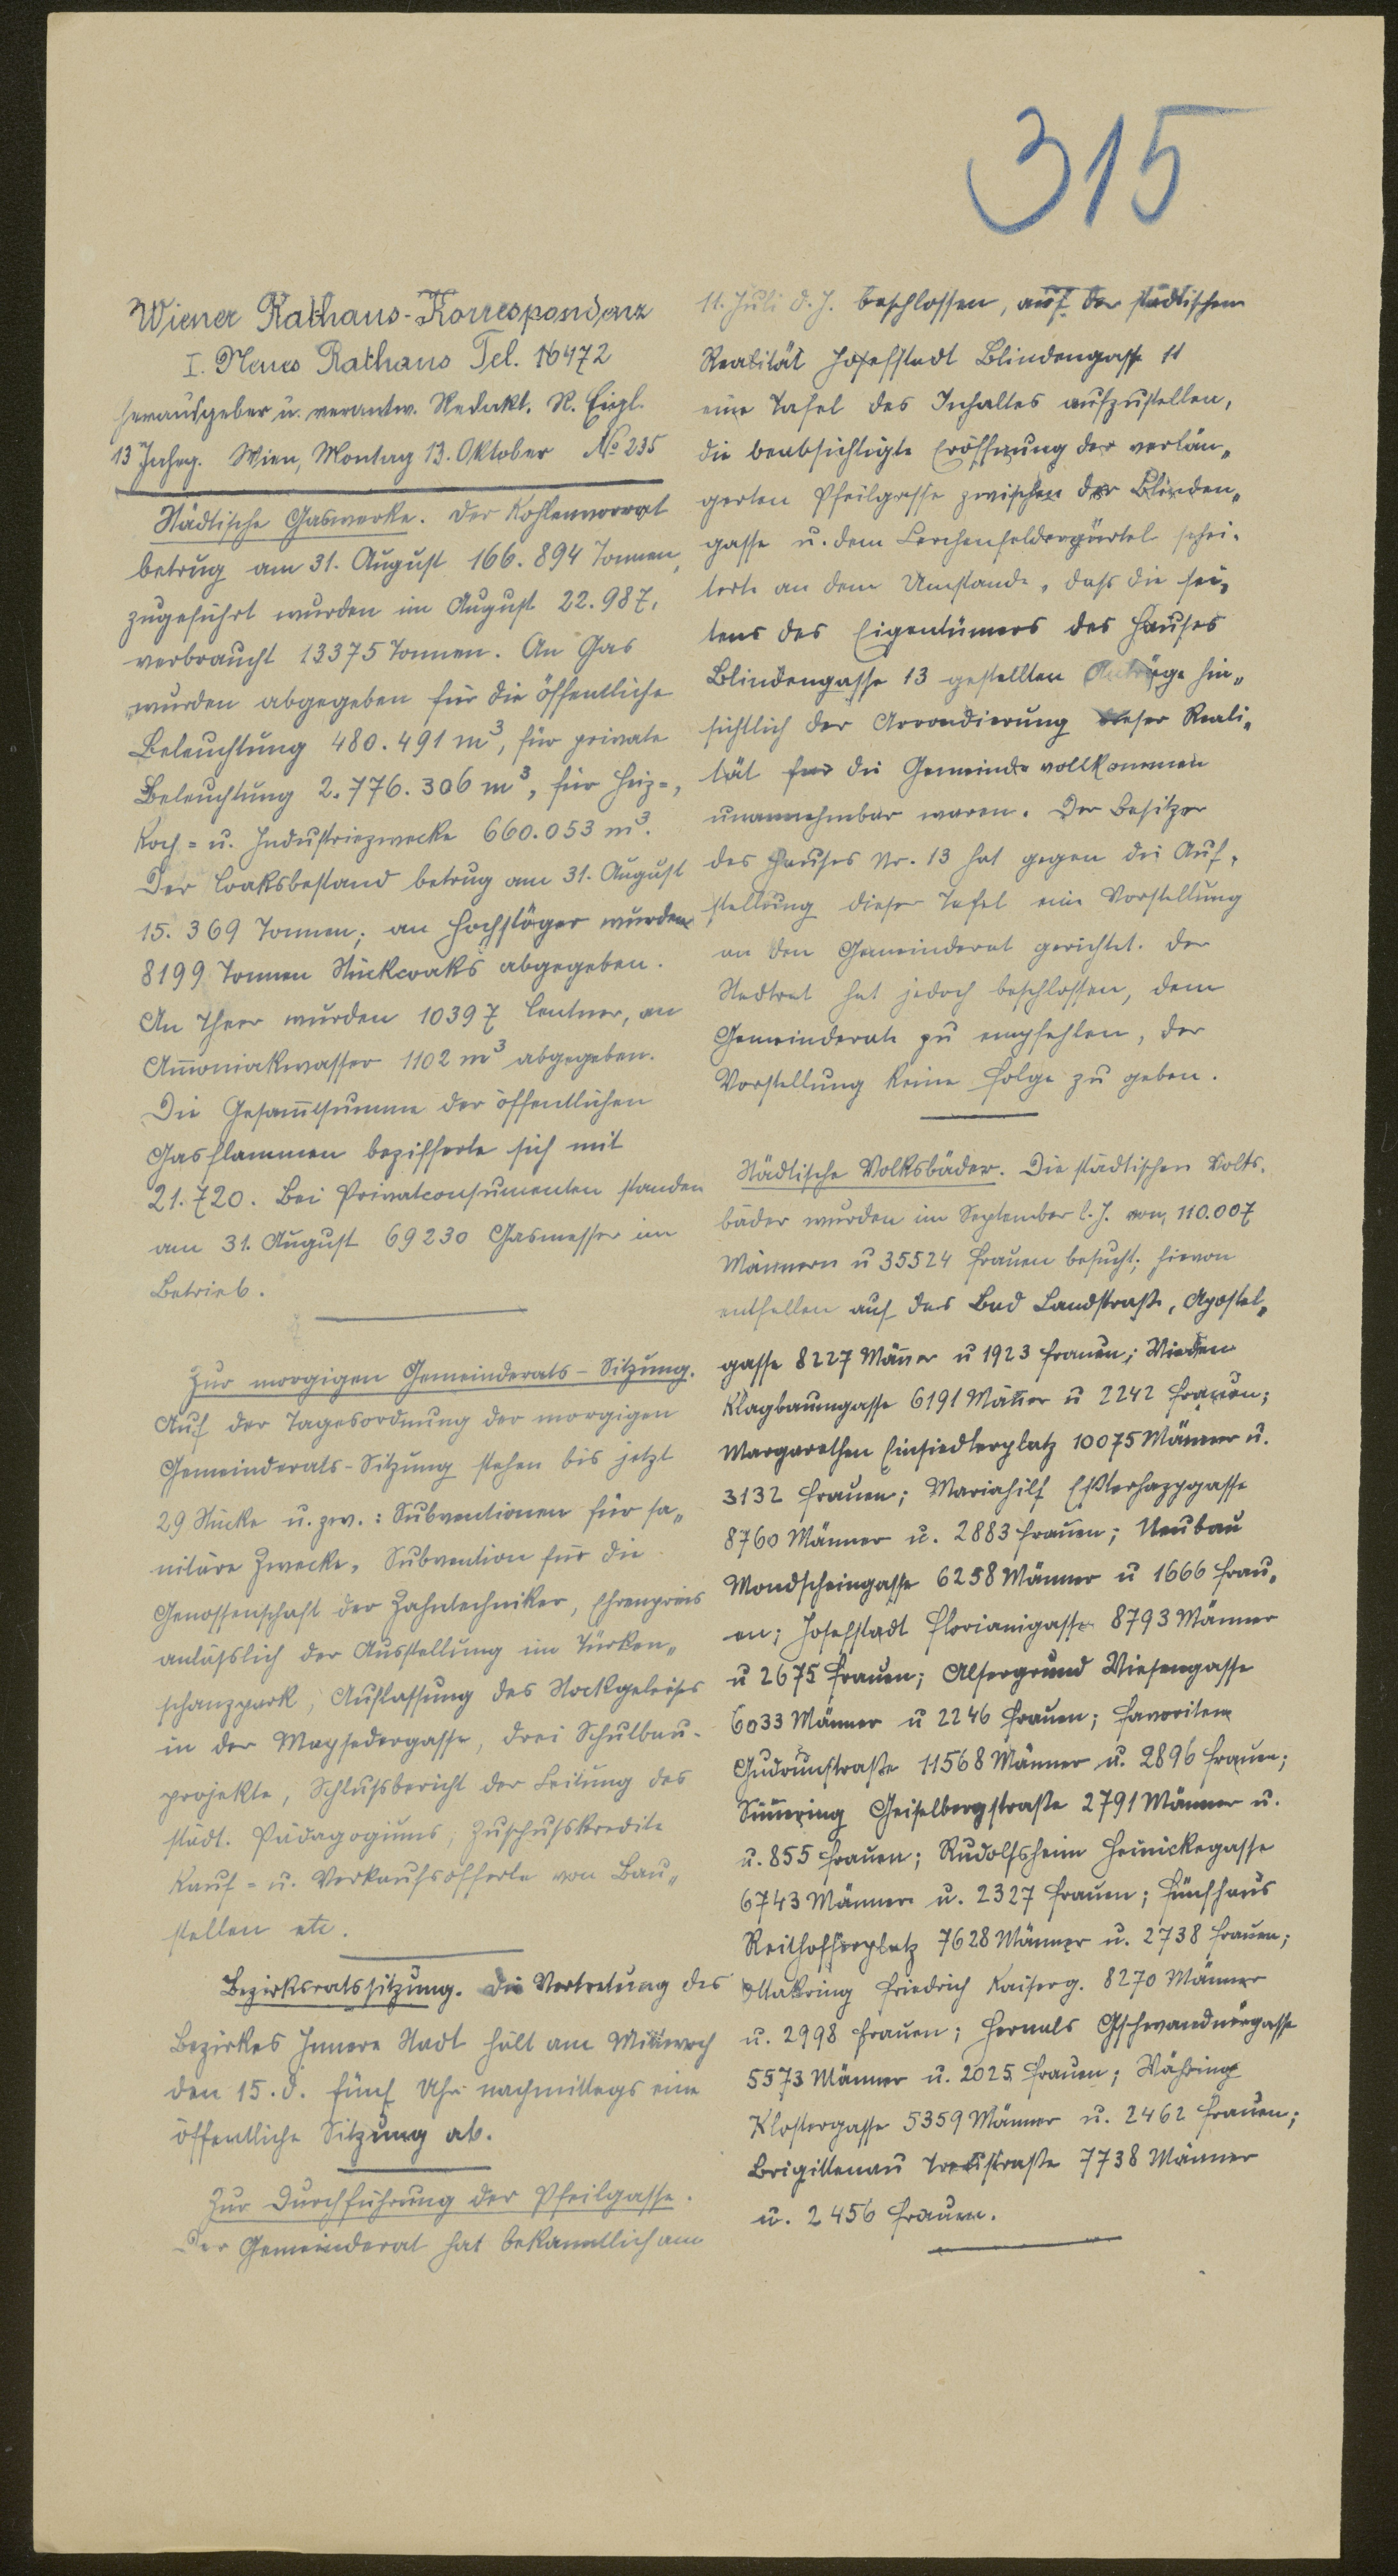 315
Wiener Rathaus-Korrespondenz
I. Neues Rathaus Tel. 16472
Herausgeber u. verantw. Redakt. R. Eigl.
13 Jahrg. Wien, Montag 13. Oktober No 235
Städtische Gaswerke. Der Kohlenvorrat
betrug am 31. August 166.894 Tonnen,
zugeführt wurden im August 22.987,
verbraucht 13375 Tonnen. An Gas
wurden abgegeben für die öffentliche
Beleuchtung 480.491 m³, für private
Beleuchtung 2.776.306 m³, für Heiz=,
Koch= u. Industriezwecke 660.053 m³.
Der Coaksbestand betrug am 31. August
15.369 Tonnen; an wurden
8199 Tonnen Stückcoaks abgegeben.
An Theer wurden 10397 Centner, an
Am̅oniakwasser 1102 m³ abgegeben.
Die Gesam̅tsumme der öffentlichen
Gasflammen bezifferte sich mit
21.720. Bei Privatconsumenten standen
am 31. August 69230 Gasmesser im
Betrieb.
Zur morgigen Gemeinderats-Sitzung.
Auf der Tagesordnung der morgigen
Gemeinderats-Sitzung stehen bis jetzt
29 Stücke u. zw.: Subventionen für sa„
nitäre Zwecke, Subvention für die
Genossenschaft der Zahntechniker, Ehrenpreis
anläßlich der Ausstellung im Türken„
schanzpark, Auflassung des Stockgeleises
in der Maysedergasse, drei Schulbau-
projekte, Schlußbericht der Leitung des
städt. Pädagogiums, Zuschußkredite
Kauf= u. Verkaufsofferte von Bau„
stellen etc.
Bezirksratssitzung. Die Vertretung des
Bezirkes Innere Stadt hält am Mittwoch
den 15. d. fünf Uhr nachmittags eine
öffentliche Sitzung ab.
Zur Durchführung der Pfeilgasse.
Der Gemeinderat hat bekanntlich am
11. Juli d. J. beschlossen, auf der städtischen
Realität Josefstadt Blindengasse 11
eine Tafel des Inhaltes aufzustellen,
die beabsichtigte Eröffnung der verlän„
gerten Pfeilgasse zwischen der Blinden„
gasse u. dem Lerchenfeldergürtel schei-
terte an dem Umstande, daß die sei„
tens des Eigentümers des Hauses
Blindengasse 13 gestellten Anträge hin„
sichtlich der Arrondierung dieser Reali„
tät für die Gemeinde vollkommen
unannehmbar waren. Der Besitzer
des Hauses Nr. 13 hat gegen die Auf-
stellung dieser Tafel eine Vorstellung
an den Gemeinderat gerichtet. Der
Stadtrat hat jedoch beschlossen, dem
Gemeinderate zu empfehlen, der
Vorstellung keine Folge zu geben.
Städtische Volksbäder. Die städtischen Volks-
bäder wurden im September l. J. von 110.007
Männern u 35524 Frauen besucht; hievon
entfallen auf das Bad Landstraße, Apostel„
gasse 8227 Män̅er u 1923 Frauen; Wieden
Klagbaumgasse 6191 Män̅er u 2242 Frauen;
Margarethen Einsiedlerplatz 10075 Männer u.
3132 Frauen; Mariahilf Eßterhazygasse
8760 Männer u. 2883 Frauen; Neubau
Mondscheingasse 6258 Männer u 1666 Frau„
en; Josefstadt Florianigasse 8793 Männer
u 2675 Frauen; Alsergrund Wiesengasse
6033 Männer u 2246 Frauen; Favoriten
Gudrunstraße 11568 Männer u. 2896 Frauen;
Sim̅ering Geiselbergstraße 2791 Männer u.
u. 855 Frauen; Rudolfsheim Heinickegasse
6743 Männer u. 2327 Frauen; Fünfhaus
Reithofferplatz 7628 Männer u. 2738 Frauen;
Ottakring Friedrich Kaiserg. 8270 Männer
u. 2998 Frauen; Hernals Gschwandnergasse
5573 Männer u. 2025 Frauen; Währing
Klostergasse 5359 Männer u. 2462 Frauen;
Brigittenau Treustraße 7738 Männer
u. 2456 Frauen.